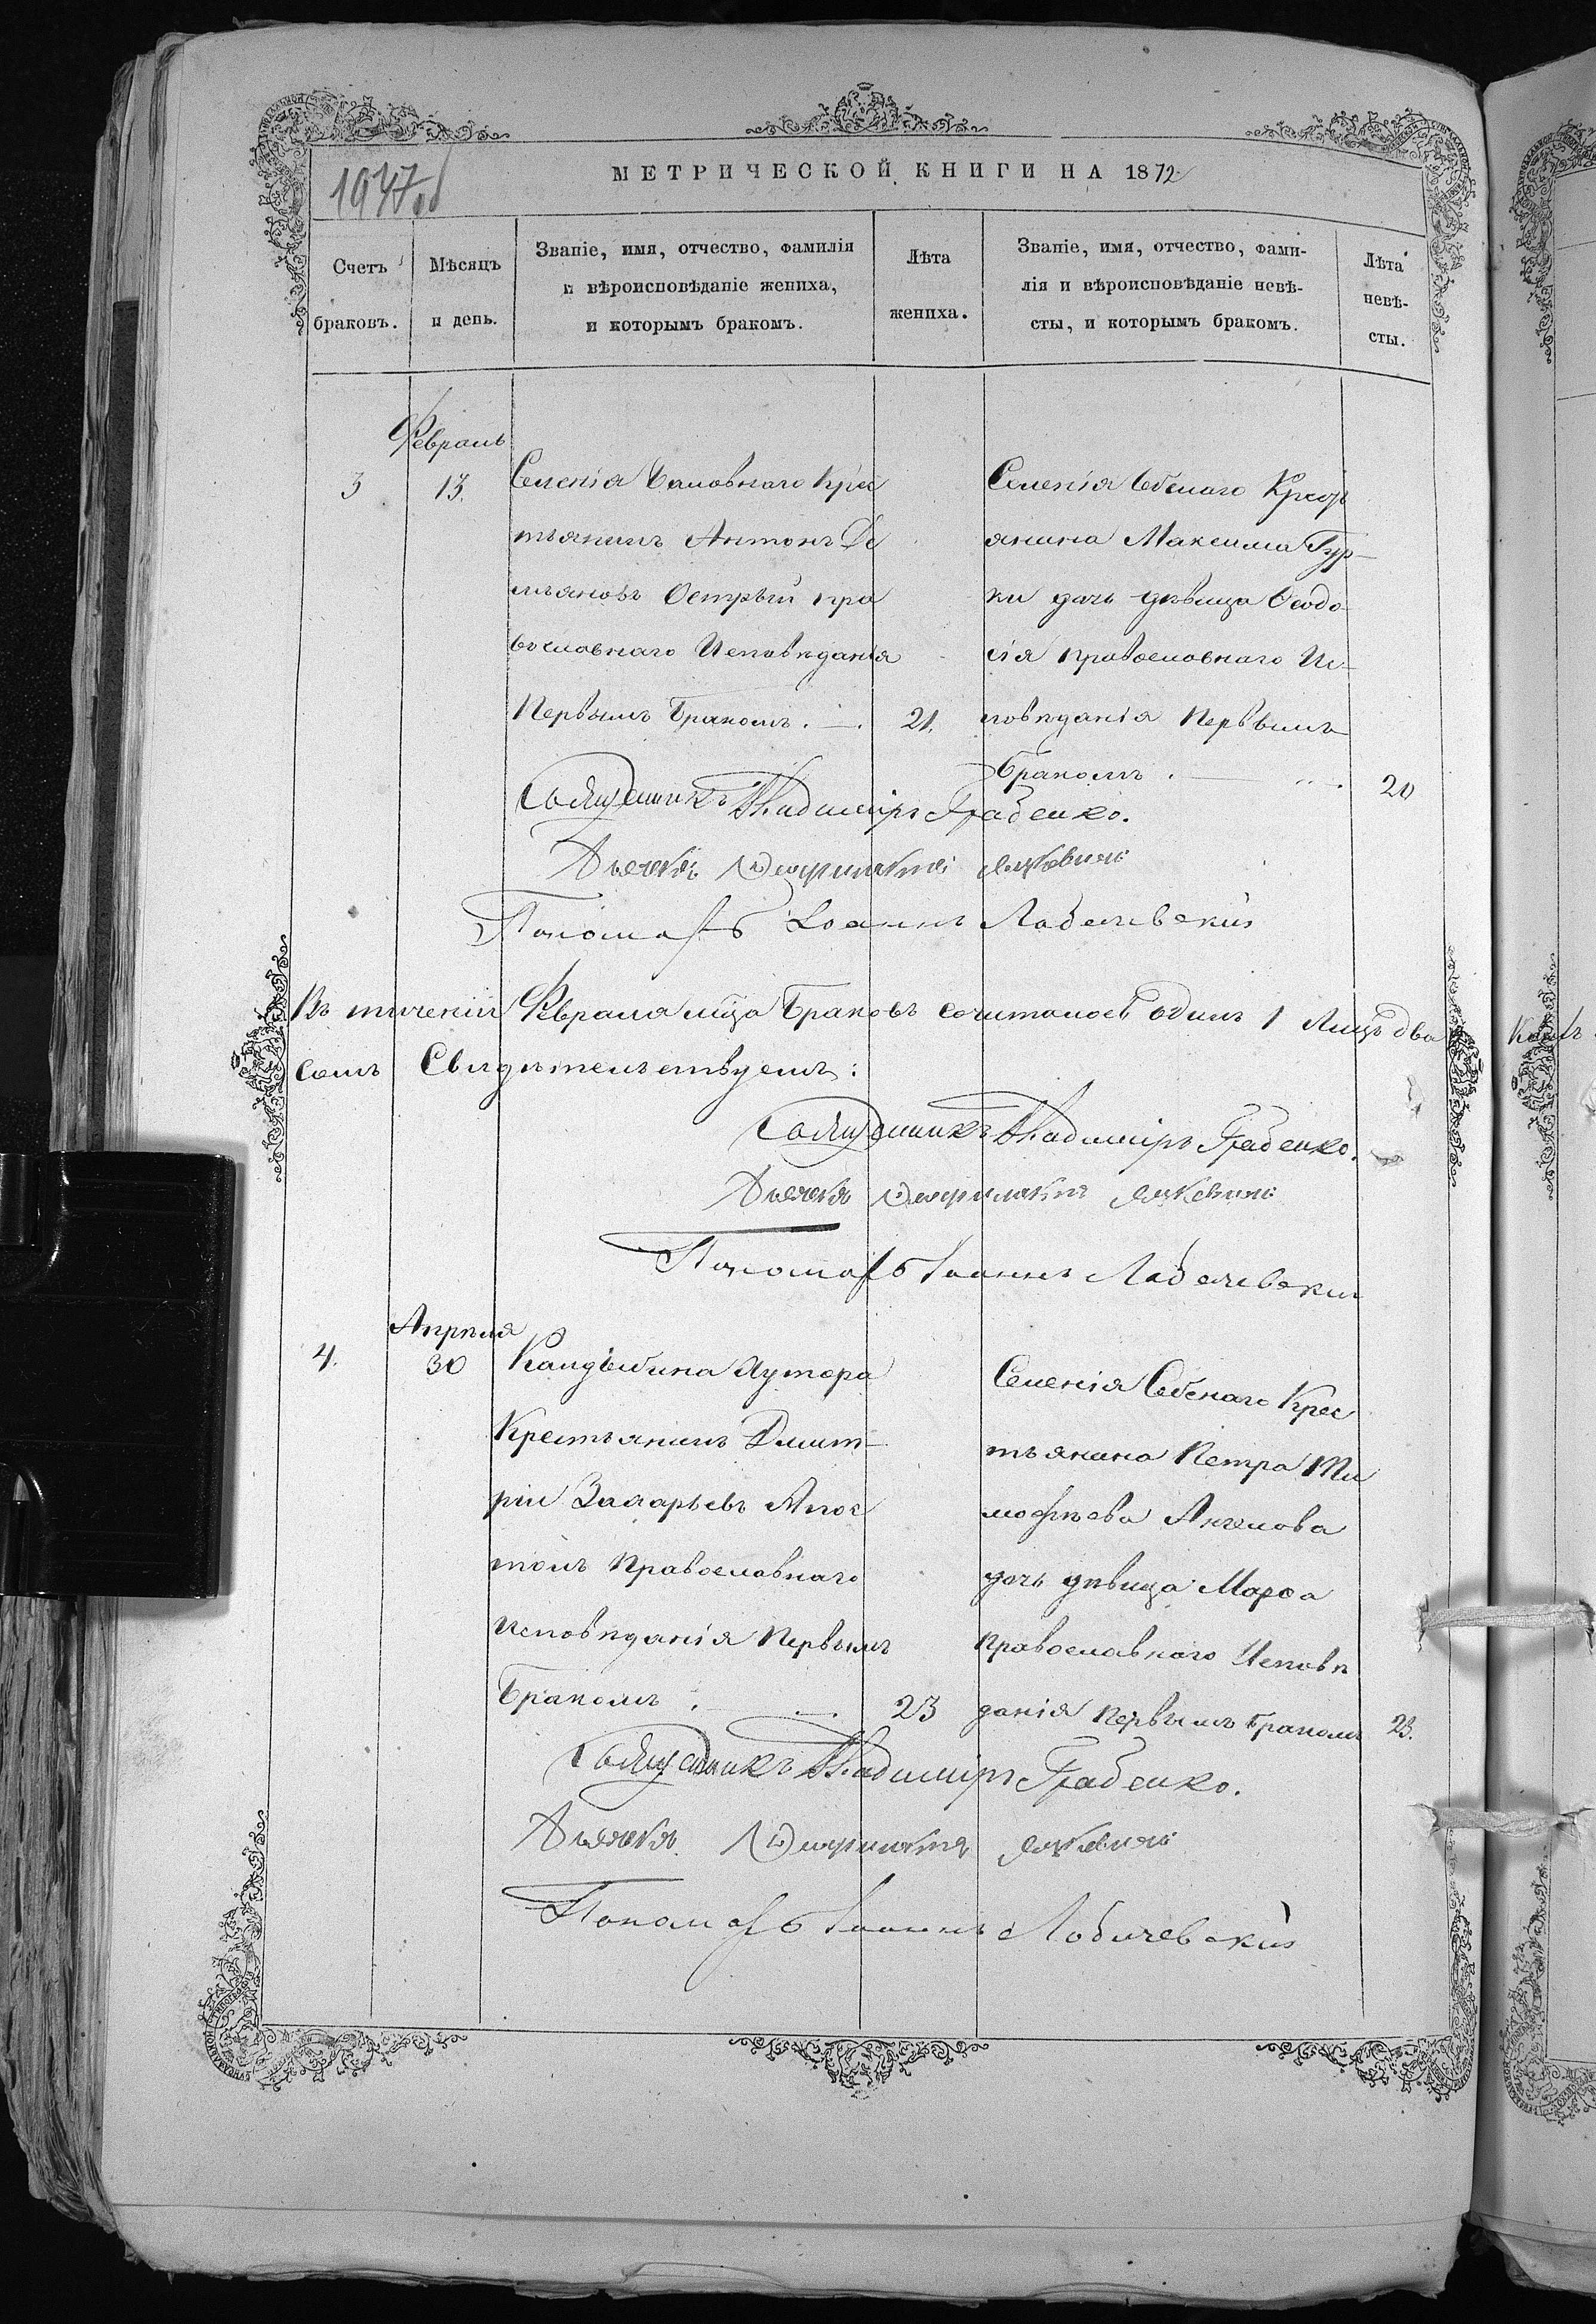 МЕТРИЧЕСКОЙ КНИГИ НА 1872
1947 об
Счетъ браковъ.
Мѣсяцъ и день.
Званіе, имя, отчество, фамилія
и вѣроисповѣданіе жениха,
и которымъ бракомъ.
Лѣта жениха.
Званіе, имя, отчество, фами-
лія и вѣроисповѣданіе невѣ-
сты, и которымъ бракомъ.
Лѣта невѣ-
сты.
Февраль
3
13.
Селенія Баловнаго Крес
тьянинъ Антонъ Де
мьяновъ Острый пра
вославнаго Исповѣданія
Первымъ Бракомъ.
21.
Селенія Крест
янина Максима Гур-
ки дочь дѣвица Ѳеодо
сія православнаго Ис-
повѣданія Первымъ
Бракомъ.
20
Священникъ Владиміръ Грабенко.
Дьячекъ
Пономарь Іоаннъ Лобачевскій
Въ теченіи Февраля мѣца Браковъ сочиталось Одинъ 1 Лицъ два
Свидѣтельствуемъ:
Священникъ Владиміръ Грабенко.
Дьячекъ
Пономарь Іоаннъ Лобачевскій
Апрѣля
4.
30
Кандыбина Хутора
Крестьянинъ Дмит-
рій Захарьевъ Апос
толъ Православнаго
Исповѣданія Первымъ
Бракомъ.
23
Селенія Крес
тьянина Петра Ти
мофѣева Ангелова
дочь дѣвица Марѳа
Православнаго Исповѣ
данія Первымъ Бракомъ
23.
Священникъ Владиміръ Грабенко.
Дьячекъ
Пономарь Іоаннъ Лобачевскій